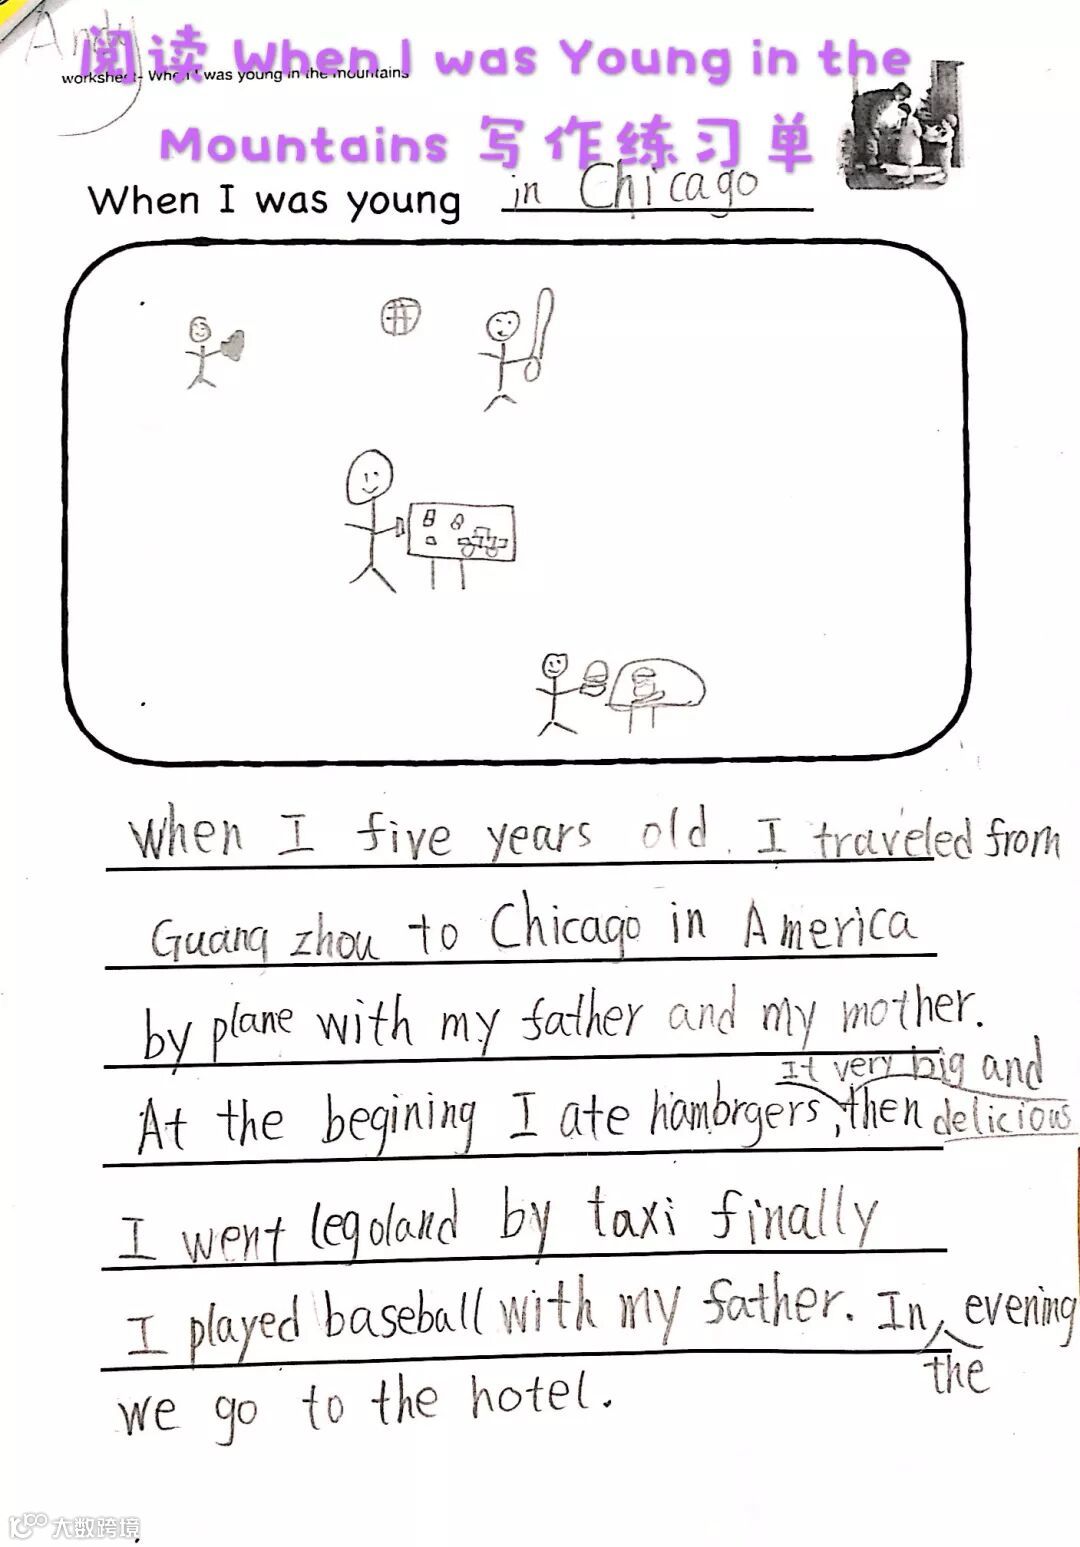 Andy
阅读 When I was Young in the
worksheet- When I was young in the mountains
Mountains 写作练习单
When I was young in Chicago
When I five years old. I traveled from
Guang zhou to Chicago in America
by plane with my father and my mother.
It very big and
At the begining I ate hambrgers, then delicious
I went legoland by taxi finally
I played baseball with my father. In evening
the
we go to the hotel.
大数跨境